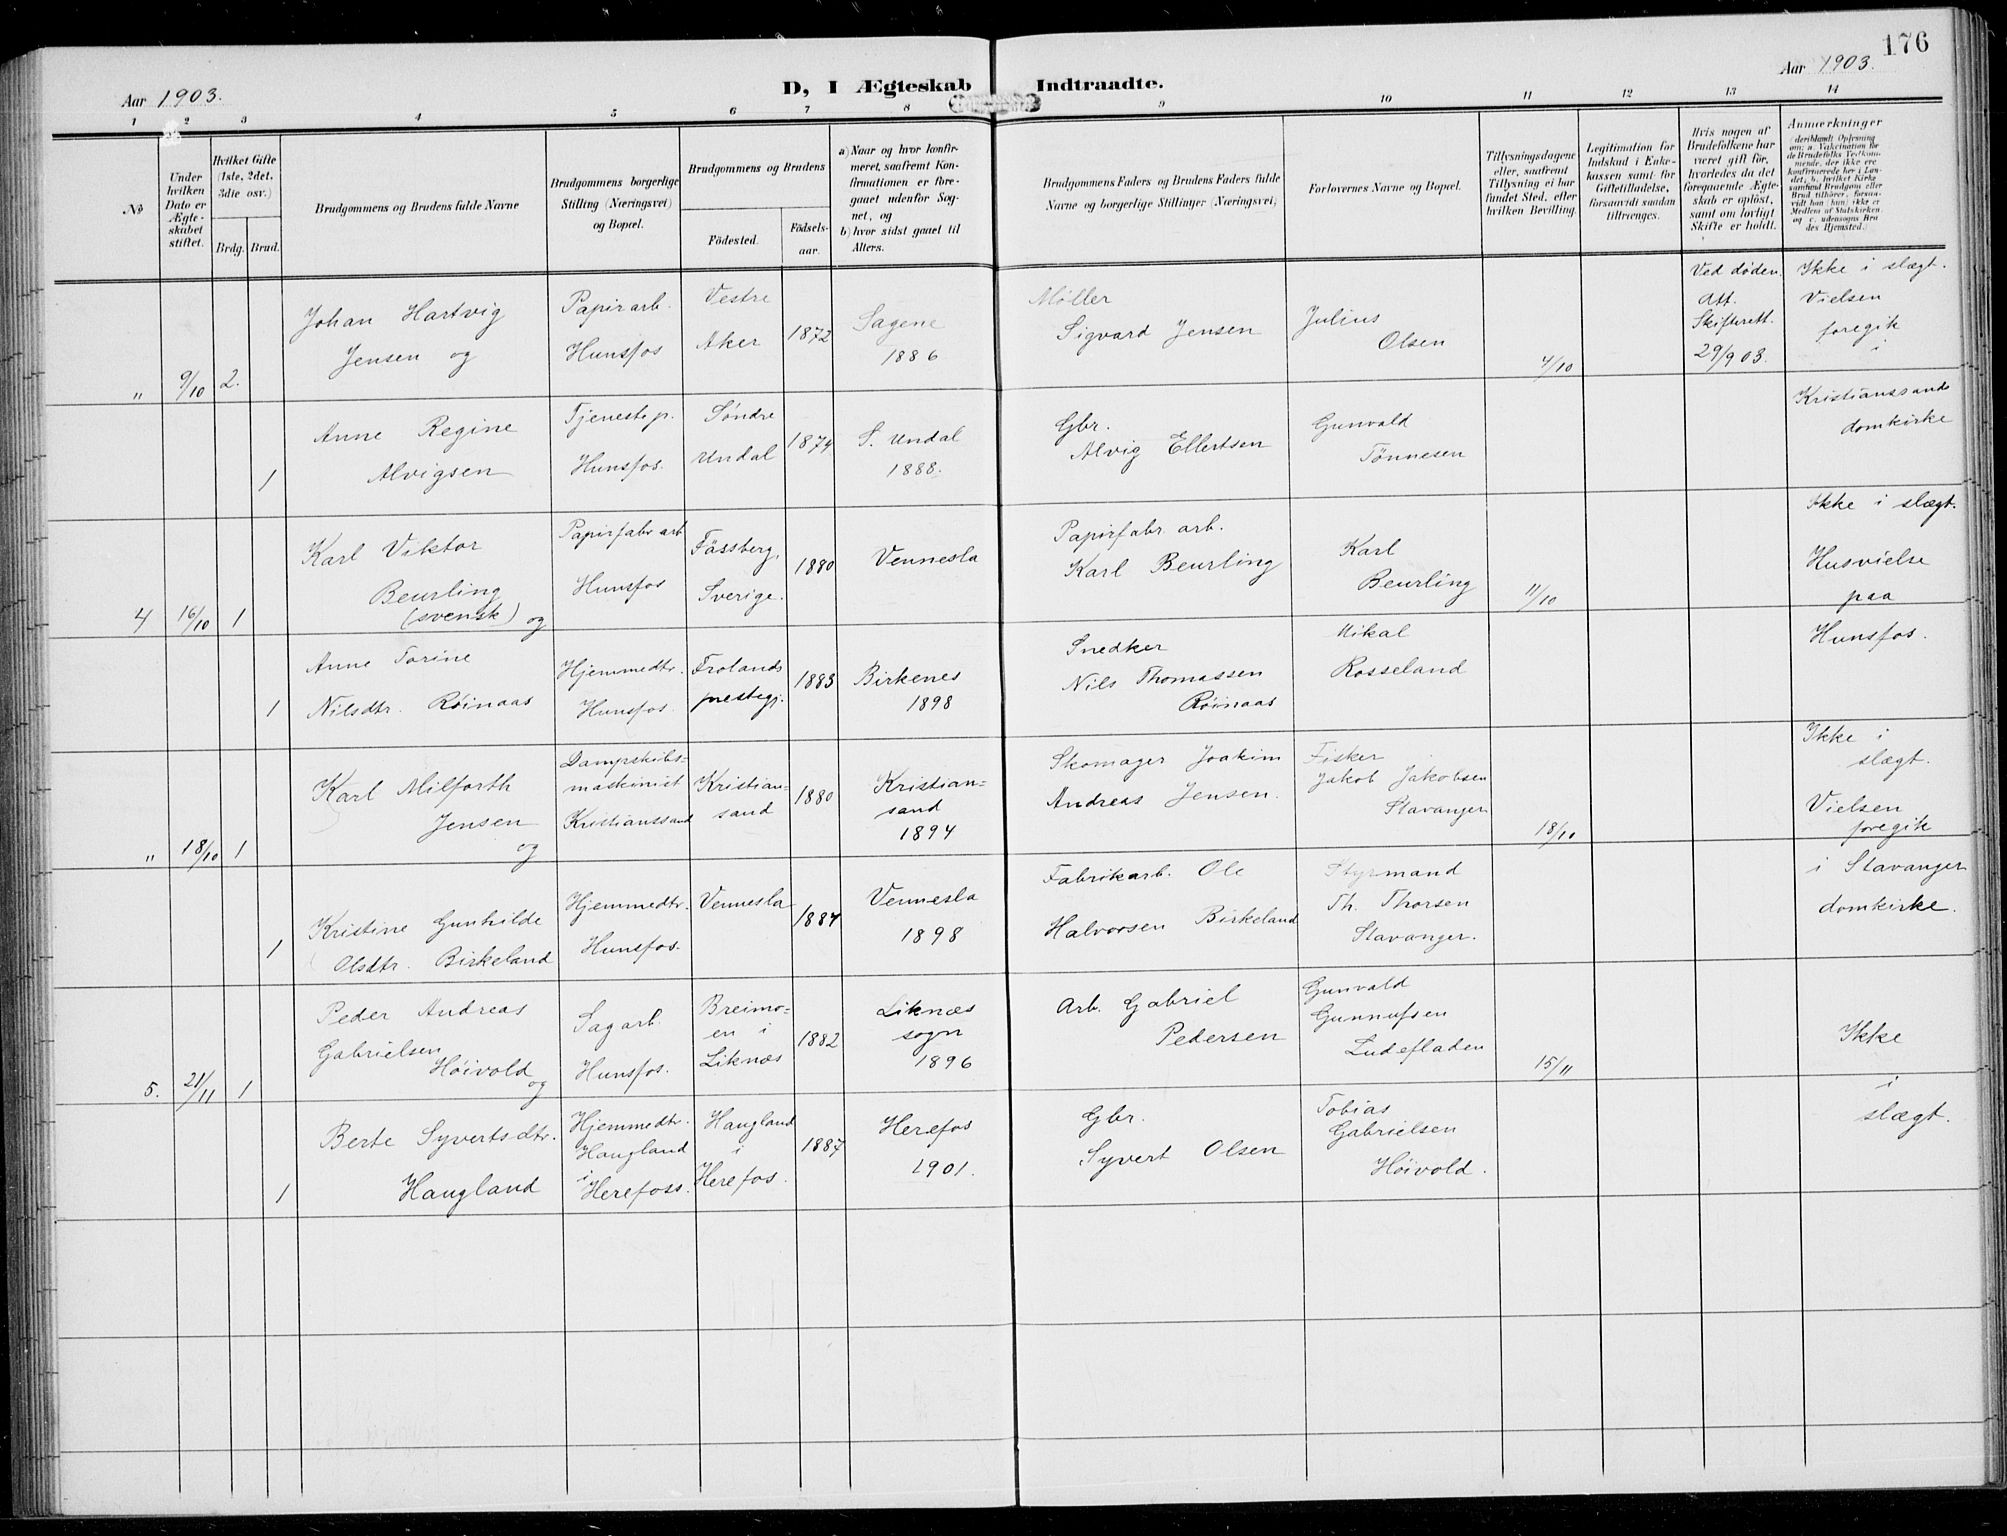 176
Aar 1903.
D, I Ægteskab Indtraadte.
Aar 1903.
1 2 3 4 5 6 7 8 9 10 11 12 13 14
No
Under hvilken Dato er Ægteskabet stiftet.
Hvilket Gifte (1ste, 2det, 3die osv.)
Brdg. Brud.
Brudgommens og Brudens fulde Navne
Brudgommens borgerlige Stilling (Næringsvei) og Bopæl.
Brudgommens og Brudens
Födested.
Födsels-aar.
a) Naar og hvor konfir-
meret, saafremt Kon-
firmationen er fore-
gaaet udenfor Sog-
net, og
b) hvor sidst gaaet til
Alters.
Brudgommens Faders og Brudens Faders fulde
Navne og borgerlige Stillinger (Næringsvei)
Forlovernes Navne og Bopæl.
Tillysningsdagene
eller, saafremt
Tillysning ei har
fundet Sted, efter
hvilken Bevilling.
Legitimation for
Indskud i Enke-
kassen samt for
Giftetilladelse,
forsaavidt saadan
tiltrænges.
Hvis nogen af
Brudefolkene har
været gift för,
hvorledes da det
foregaaende Ægte-
skab er oplöst,
samt om lovligt
Skifte er holdt.
Anmærkninger
(deriblandt Oplysning
om: a. Vakcination for
de Brudefolks Vedkom-
mende, der ikke ere
konfirmerede her i Lan-
det, b. hvilket Kirke
samfund Brudgom eller
Brud tilhörer, forsaa-
vidt han (hun) ikke er
Medlem af Statskirken
og c. udensogns Bru
des Hjemsted.)
" 9/10 2.
Johan Hartvig
Jensen og
Papirarb.
Hunsfos
Vestre
Aker
1872
Sagene
1886
Møller
Sigvard Jensen
Julius
Olsen
4/10
Ved döden.
Att.
Skifterett.
29/9 03.
Ikke i slægt.
Vielsen
foregik
i
1
Anne Regine
Alvigsen
Tjenestep.
Hunsfos.
Søndre
Undal
1874
S. Undal
1888.
Gbr.
Alvig Ellertsen
Gunvald
Tönnesen
Kristianssands
domkirke
4 16/10 1
Karl Viktor
Beurling
(svensk) og
Papirfabr arb
Hunsfos
Fässberg,
Sverige.
1880
Vennesla
Papirfabr. arb.
Karl Beurling
Karl
Beurling
11/10
Ikke i slægt.
Husvielse
paa
1
Anne Torine
Nilsdtr. Röinaas
Hjemmedtr.
Hunsfos.
Frolands
prestegj.
1883
Birkenes
1898
Snedker
Nils Thomassen
Röinaas
Mikal
Rosseland
Hunsfos.
" 18/10 1
Karl Milforth
Jensen
og
Dampskibs-
maskinist
Kristianssand
Kristian-
sand
1880
Kristian-
sand
1894
Skomager Joakim
Andreas Jensen.
Fisker
Jakob Jakobsen
Stavanger
18/10
Ikke i
slægt.
Vielsen
foregik
1
Kristine Gunhilde
Olsdtr. Birkeland
Hjemmedtr.
Hunsfos.
Vennesla
1884
Vennesla
1898
Fabrikarb. Ole
Halvorsen Birkeland
Styrmand
Th. Thorsen
Stavanger.
i Stavanger
domkirke.
5. 21/11 1
Peder Andreas
Gabrielsen
Höivold
og
Sagarb.
Hunsfos.
Breimo-
en i
Liknæs
1882
Liknæs
sogn
1896
Arb. Gabriel
Pedersen
Gunvald
Gunnufsen
Ludefladen
15/11
Ikke
i
1
Berte Syvertsdtr.
Haugland
Hjemmedtr.
Haugland
i
Herefoss.
Haugland
i
Herefos.
1887
Herefos
1901.
Gbr.
Syvert Olsen
Tobias
Gabrielsen
Höivold.
slægt.